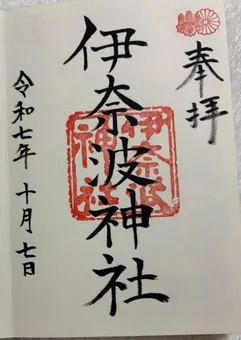 奉拝
伊奈波神社
伊奈波
神社
令和七年十月七日